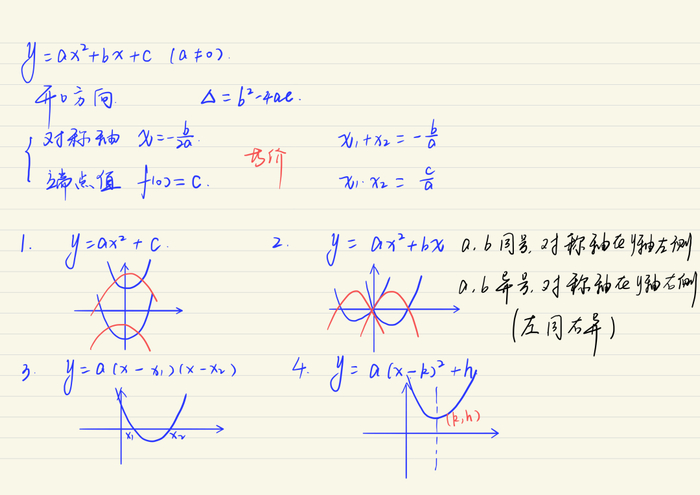 y=ax²+bx+c (a≠0).
开口方向. Δ=b²-4ac.
对称轴 x=-b/2a.
x₁+x₂=-b/a
端点值 f(0)=C.
x₁·x₂=c/a
1. y=ax²+c.
2. y=ax²+bx
a.b同号.对称轴在y轴左侧
a.b异号.对称轴在y轴右侧
(左同右异)
3. y=a(x-x₁)(x-x₂)
x₁ x₂
4. y=a(x-k)²+h
(k,h)